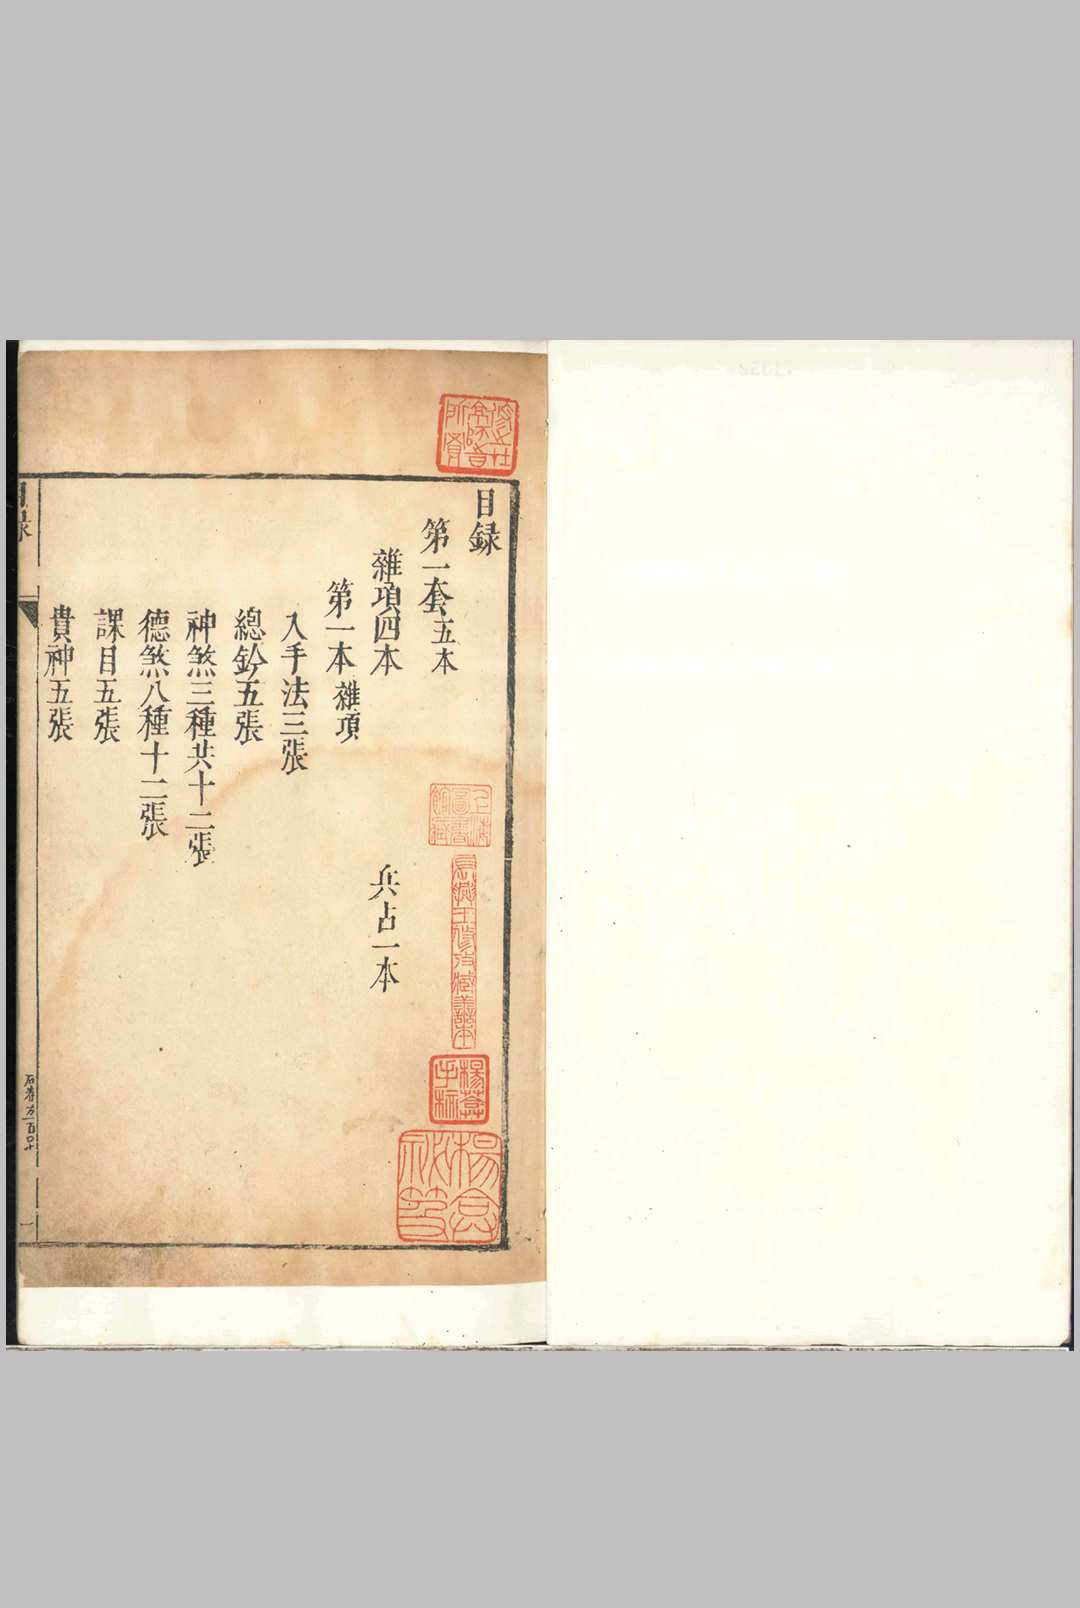 目録
第一套五本
雜項四本　兵占一本
第一本雜項
入手法三張
總鈐五張
神煞三種共十二張
德煞八種十二張
課目五張
貴神五張
目録
一
上海圖書館藏